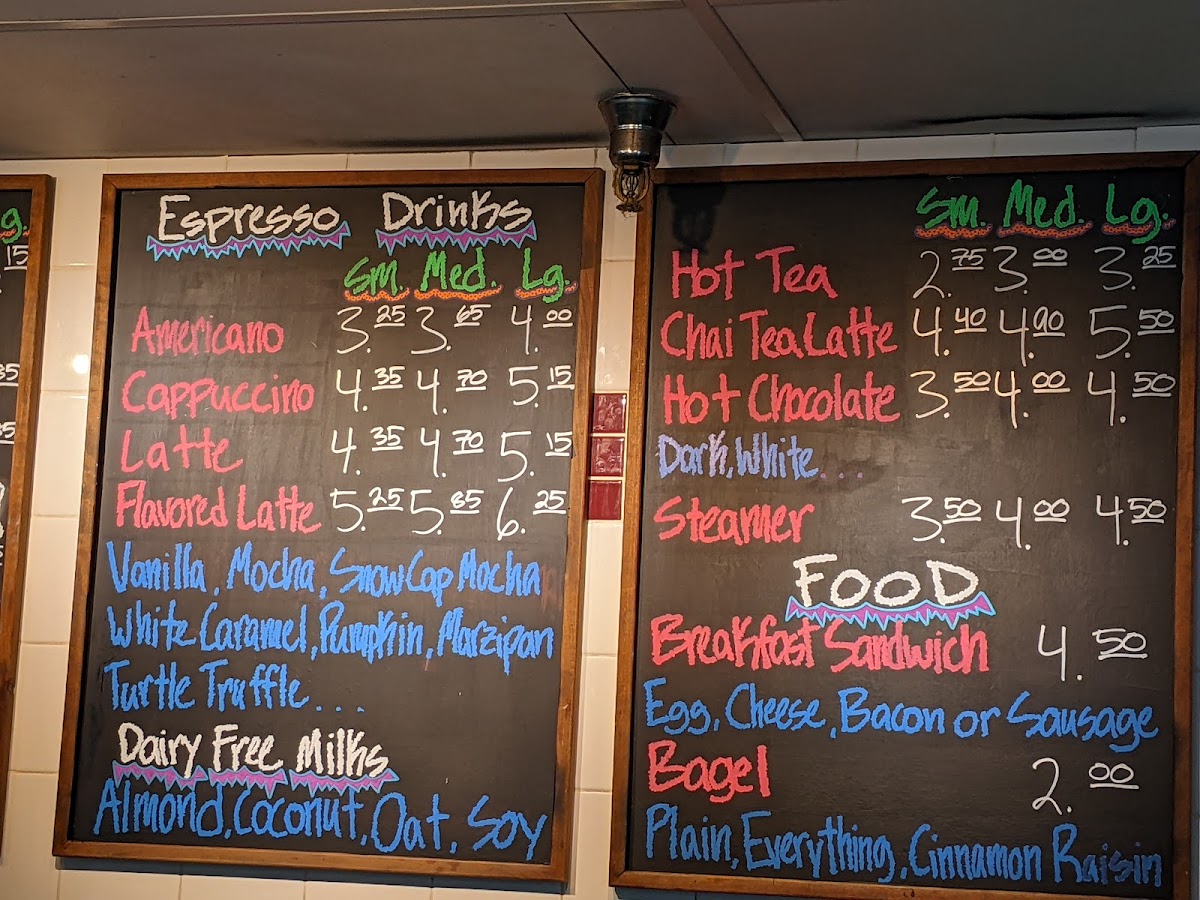 g.
15
35
35
Espresso Drinks
Sm. Med. Lg.
Americano 3.25 3.65 4.00
Cappuccino 4.35 4.70 5.15
Latte 4.35 4.70 5.15
Flavored Latte 5.25 5.85 6.25
Vanilla, Mocha, SnowCap Mocha
White Caramel, Pumpkin, Marzipan
Turtle Truffle...
Dairy Free Milks
Almond, Coconut, Oat, Soy
Sm. Med. Lg.
Hot Tea 2.75 3.00 3.25
Chai Tea Latte 4.40 4.90 5.50
Hot Chocolate 3.50 4.00 4.50
Dark, White...
Steamer 3.50 4.00 4.50
FOOD
Breakfast Sandwich 4.50
Egg, Cheese, Bacon or Sausage
Bagel 2.00
Plain, Everything, Cinnamon Raisin